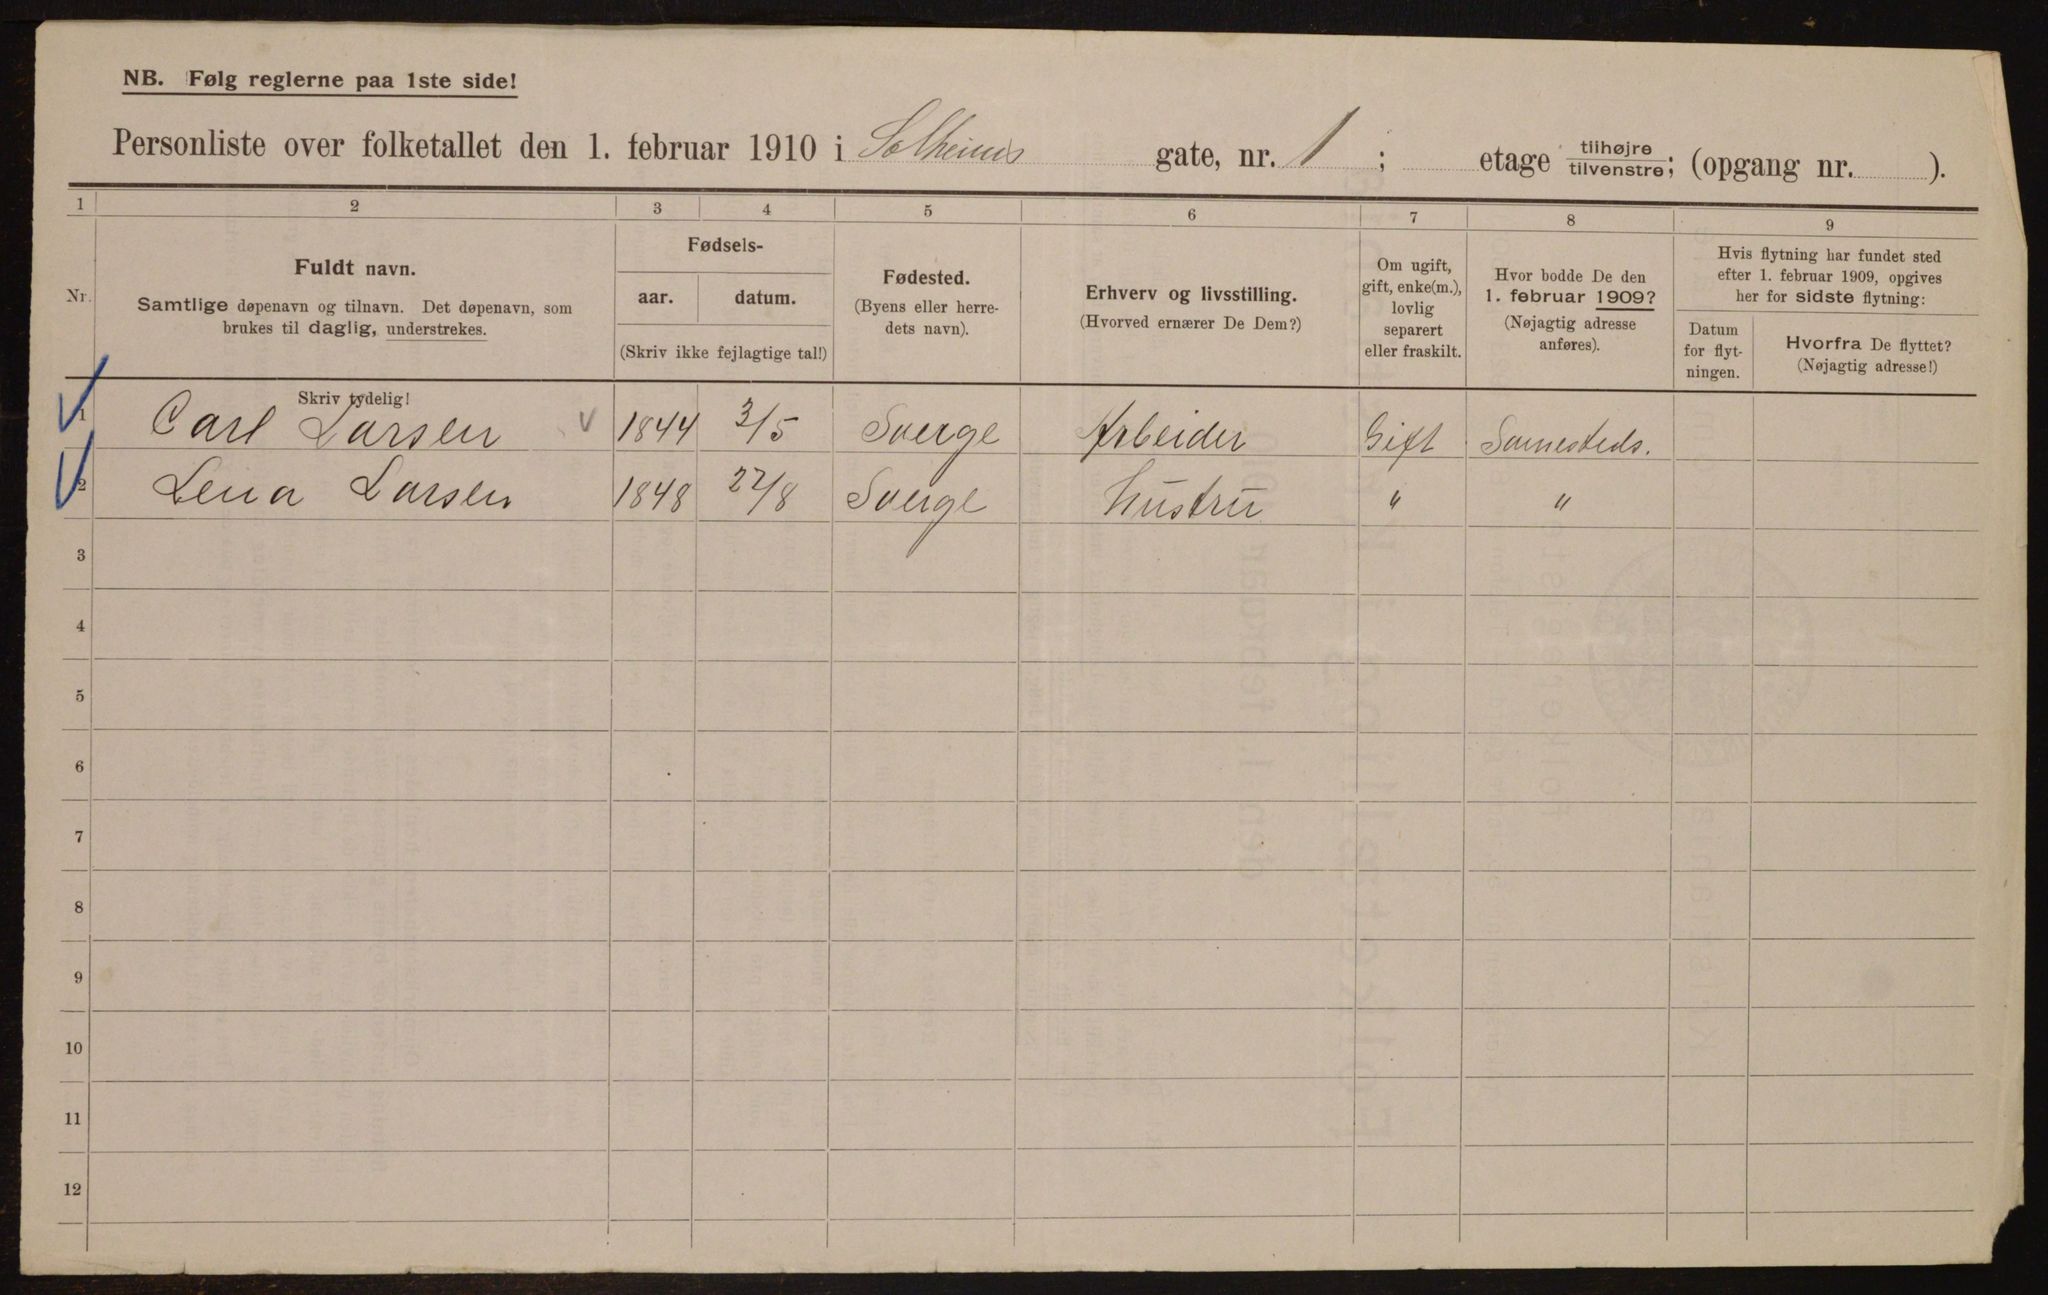 NB. Følg reglerne paa 1ste side!
Personliste over folketallet den 1. februar 1910 i Solheims gate, nr. 1 ; etage tilhøjre/tilvenstre; (opgang nr. ).
1 2 3 4 5 6 7 8 9
Nr.
Fuldt navn.
Samtlige døpenavn og tilnavn. Det døpenavn, som
brukes til daglig, understrekes.
Skriv tydelig!
Fødsels-
aar. datum.
(Skriv ikke fejlagtige tal!)
Fødested.
(Byens eller herre-
dets navn).
Erhverv og livsstilling.
(Hvorved ernærer De Dem?)
Om ugift,
gift, enke(m.),
lovlig
separert
eller fraskilt.
Hvor bodde De den
1. februar 1909?
(Nøjagtig adresse
anføres).
Hvis flytning har fundet sted
efter 1. februar 1909, opgives
her for sidste flytning:
Datum
for flyt-
ningen.
Hvorfra De flyttet?
(Nøjagtig adresse!)
1 Carl Larsen 1844 3/5 Sverge Arbeider Gift Samesteds.
2 Lena Larsen 1848 27/8 Sverge Hustru " "
3
4
5
6
7
8
9
10
11
12